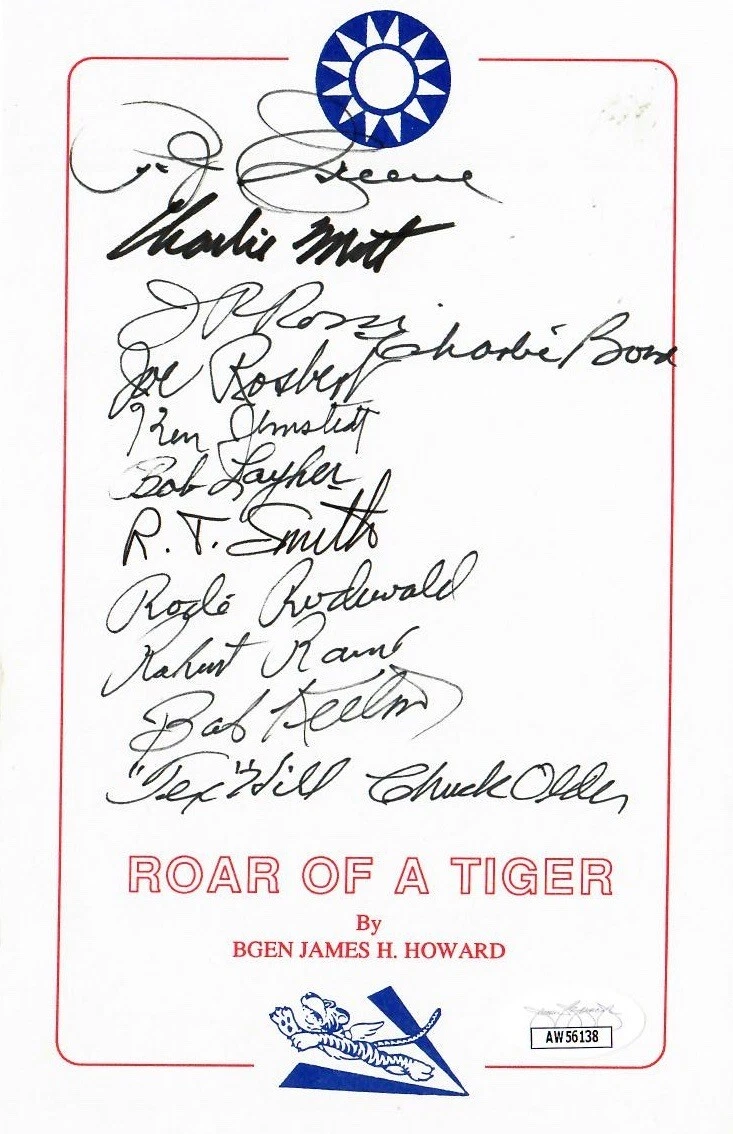 P. J. Greene
Charlie Mott
J R Rossi
Charlie Bond
Joe Rosbert
Ken Jernstedt
Bob Layher
R. T. Smith
Rode Rodewald
Robert Raine
Bob Keeton
"Tex" Hill Chuck Older
ROAR OF A TIGER
By
BGEN JAMES H. HOWARD
AW56138